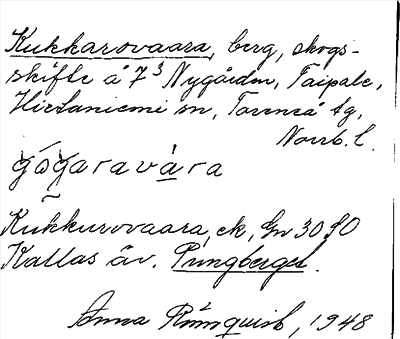 Kukkarovaara, berg, skogs-
skifte å 7³ Nygården, Taipale,
Hietaniemi sn, Torneå tg,
Norrb. l.
gógaravàra
~
Kukkurovaara, ek, Gv 3090
Kallas äv. Pungberget.
Anna Rönnquist, 1948